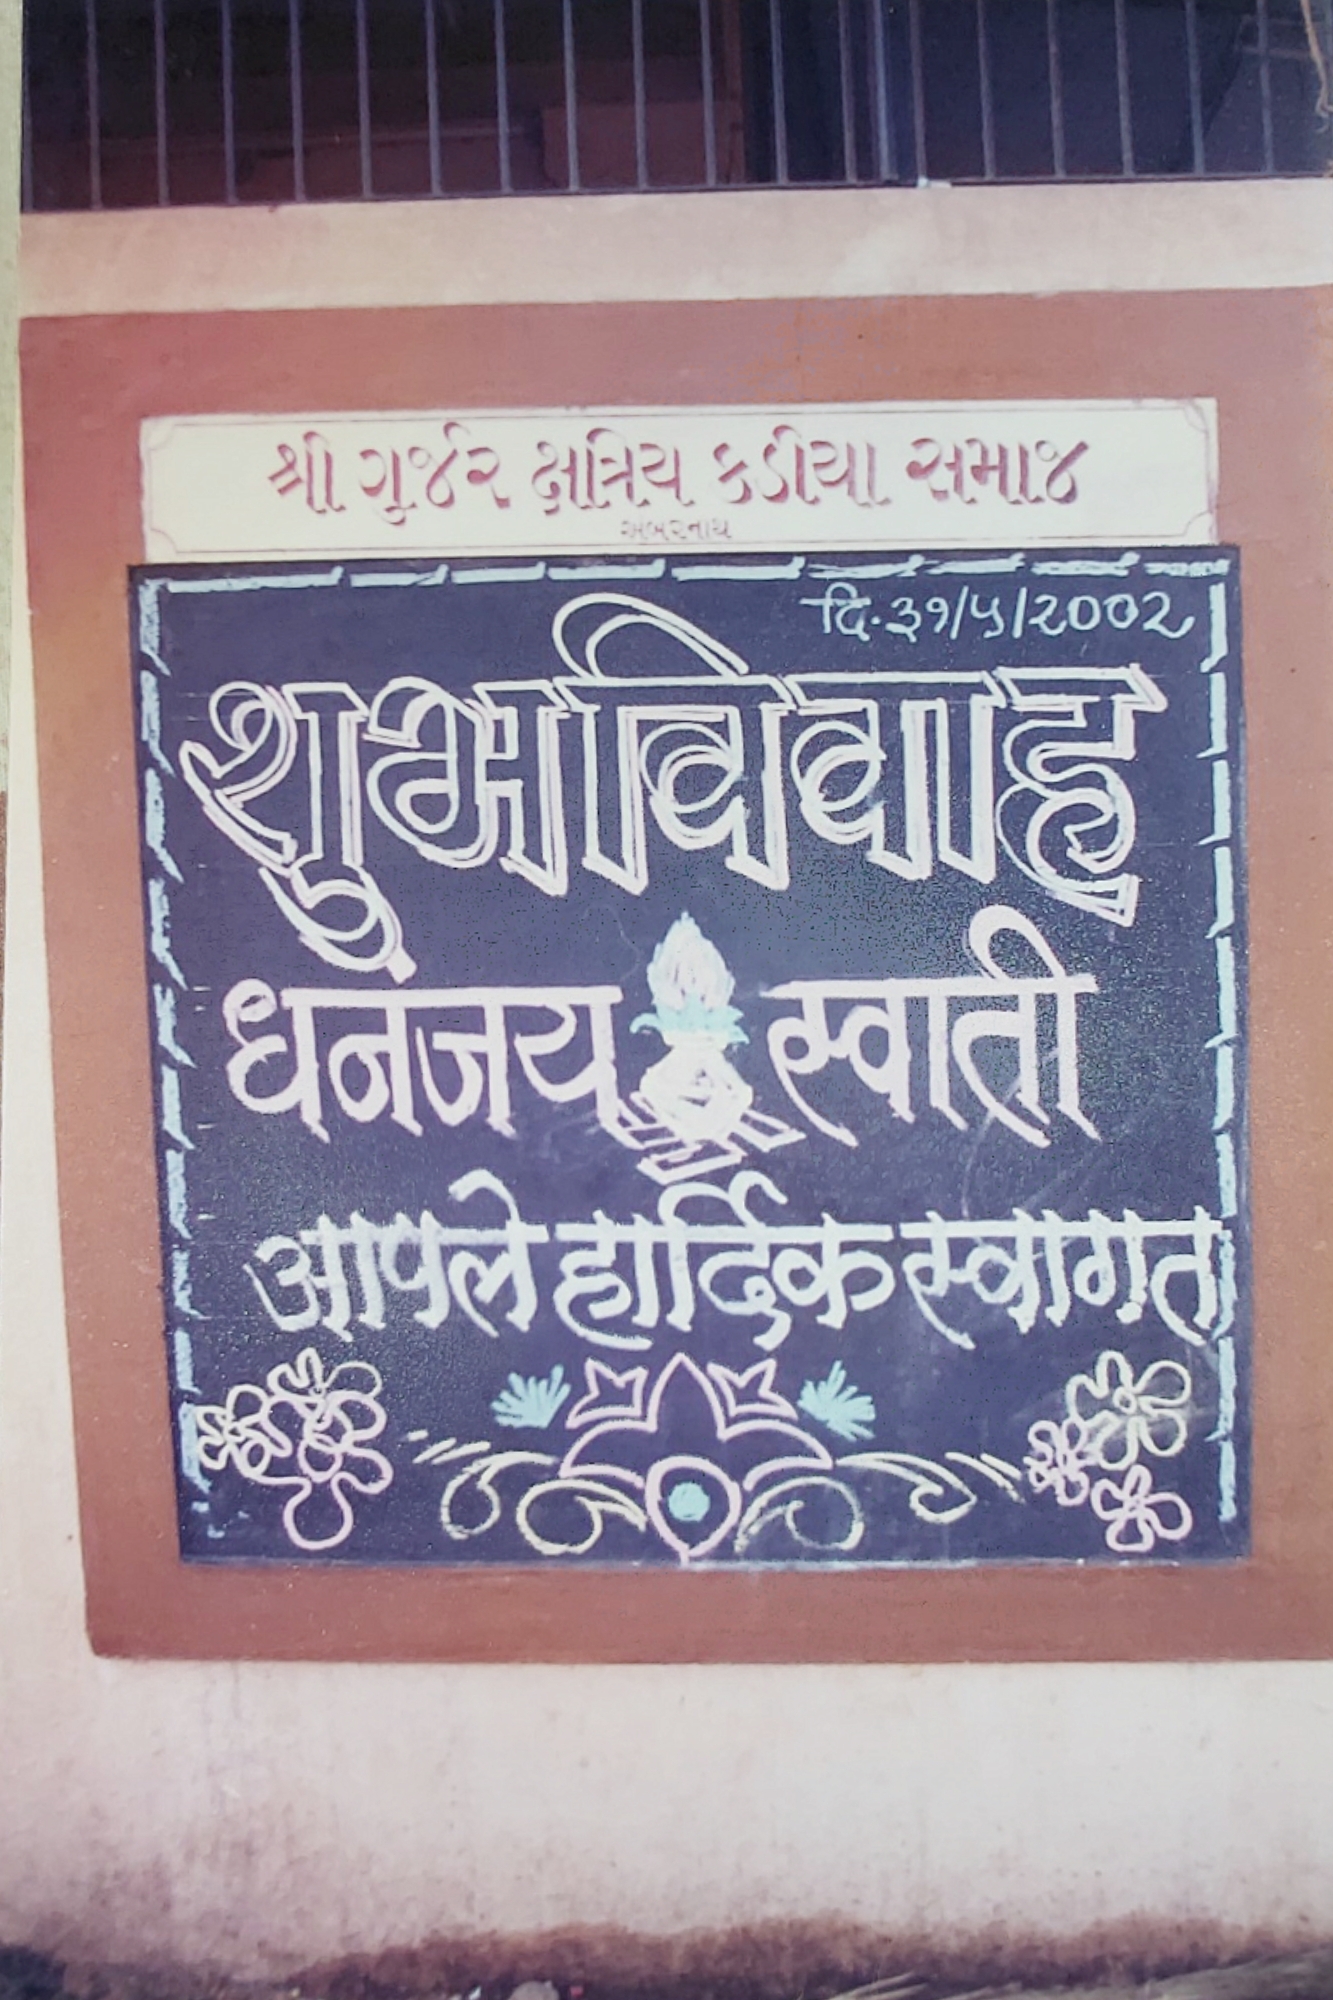 શ્રી ગુર્જર ક્ષત્રિય કડીયા સમાજ
અંબરનાથ
दि. ३१/५/२००२
शुभविवाह
धनंजय स्वाती
आपले हार्दिक स्वागत